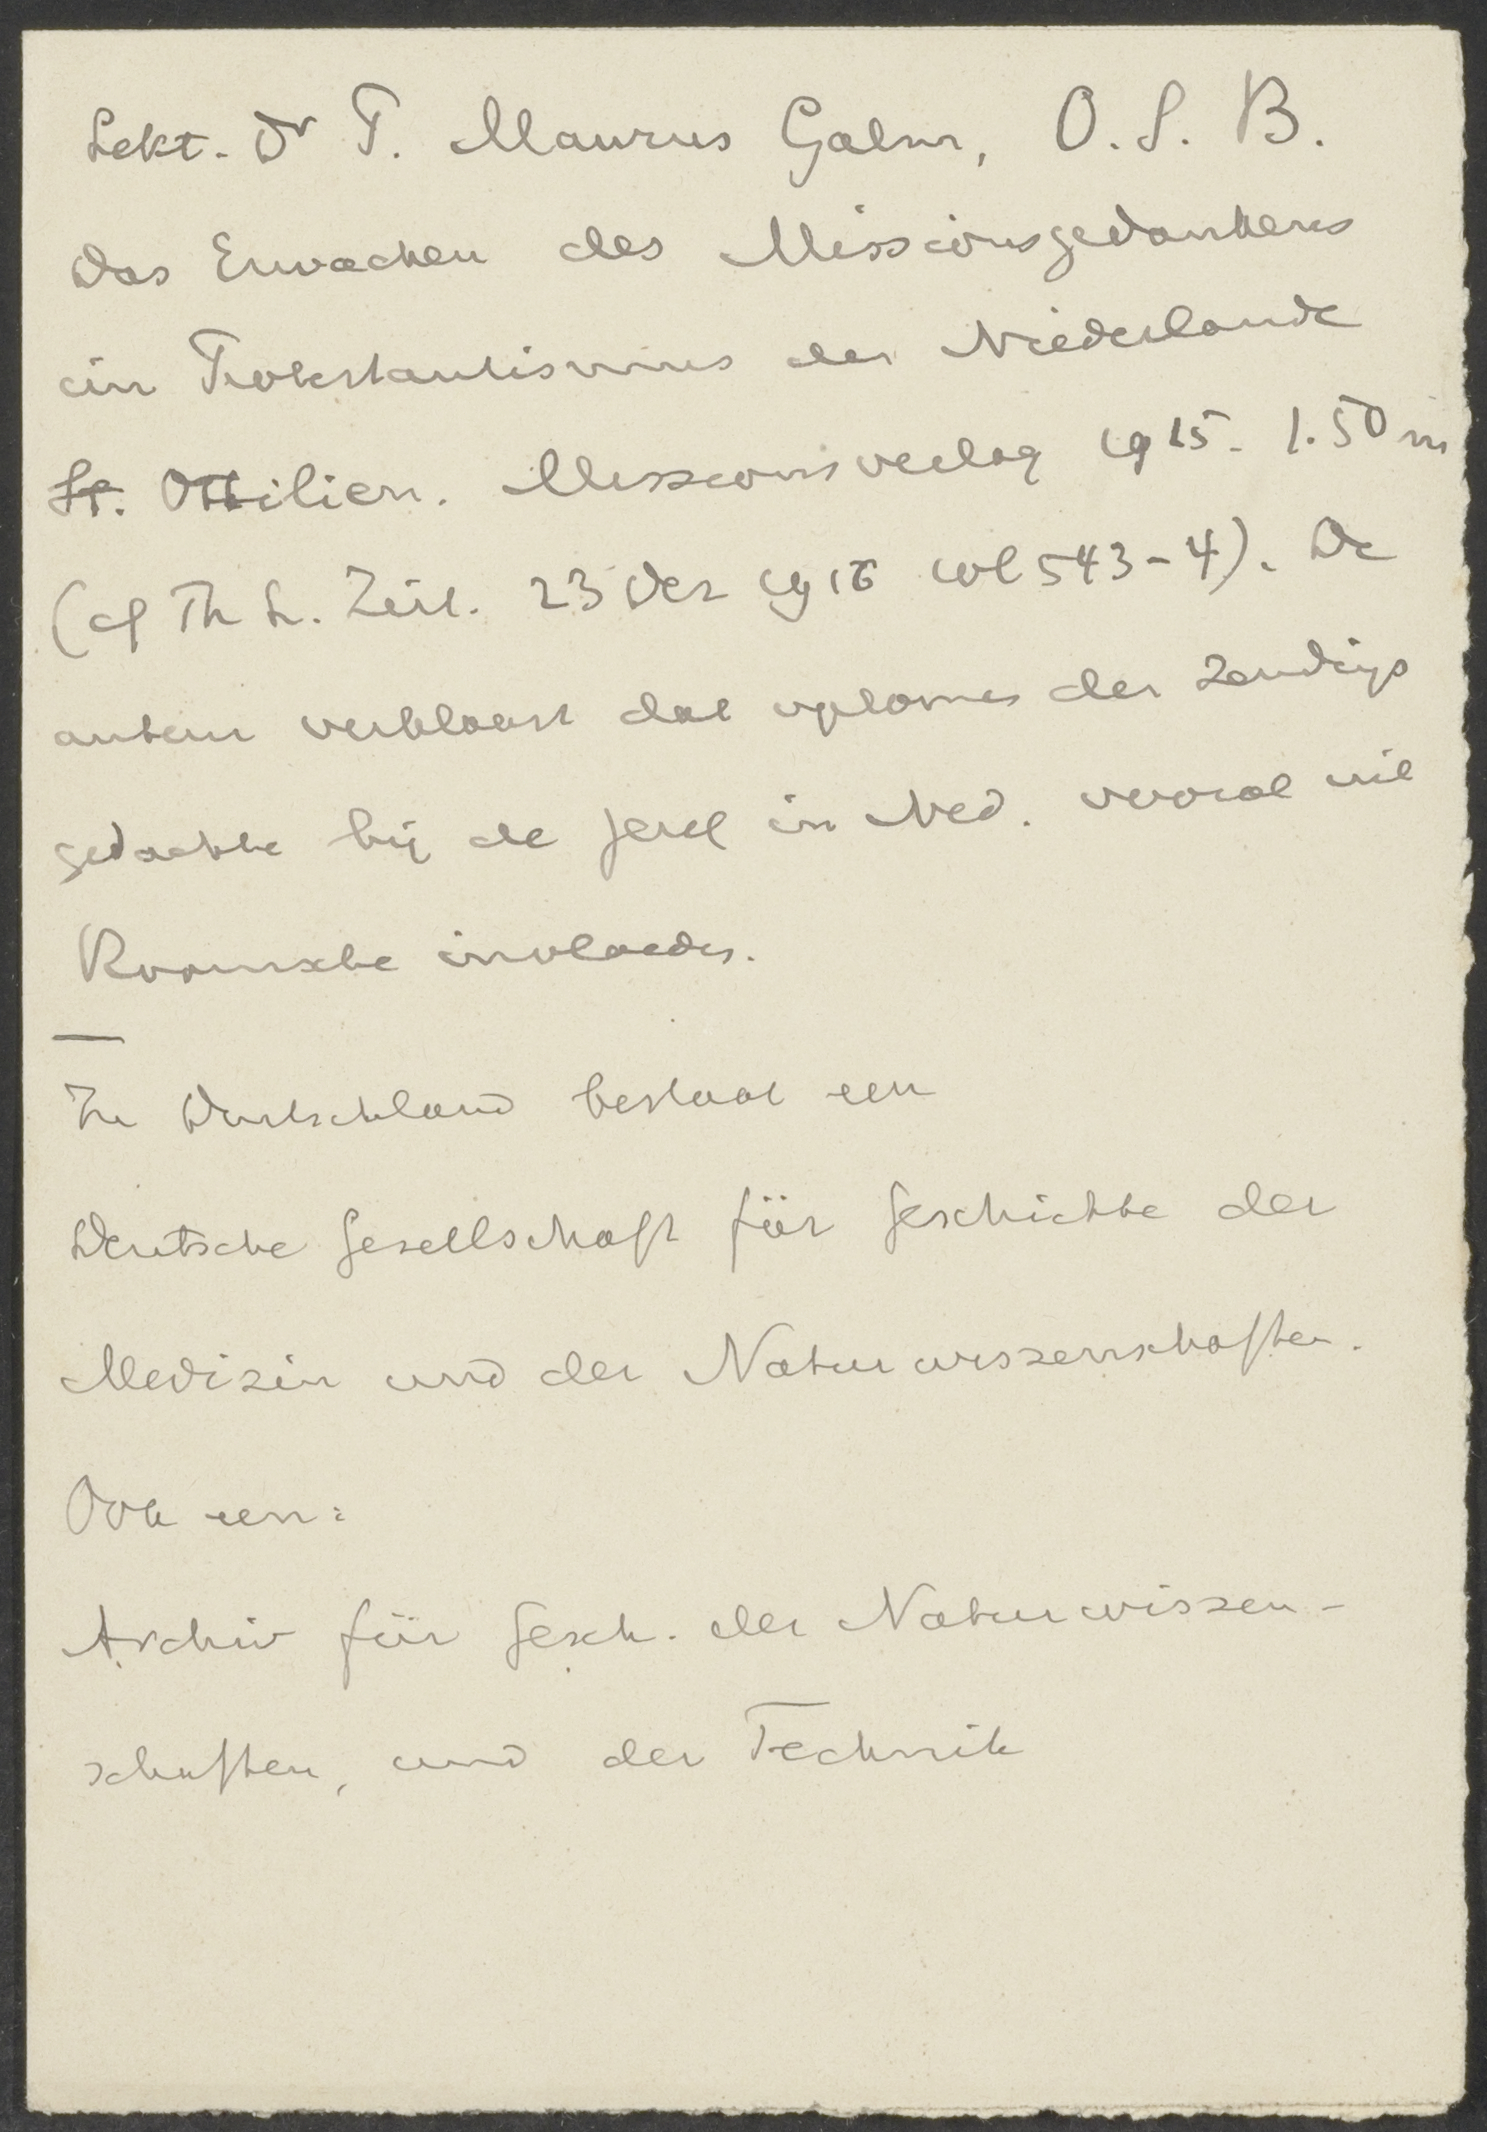 Lekt. Dr P. Maurus Galm, O. S. B.
Das Erwachen des Missionsgedankens
im Protestantismus der Niederlande
St. Ottilien. Missionsverlag 1915. 1.50 m
(cf Th L. Zeit. 23 Dez 1916 col 543-4). De
auteur verklaart dat opkomen der zendings
gedachte bij de Geref in Ned. vooral uit
Roomsche invloeden.
—
In Duitschland bestaat een
Deutsche Gesellschaft für Geschichte der
Medizin und der Naturwissenschaften.
Ook een:
Archiv für Gesch. der Naturwissen-
schaften, und der Technik